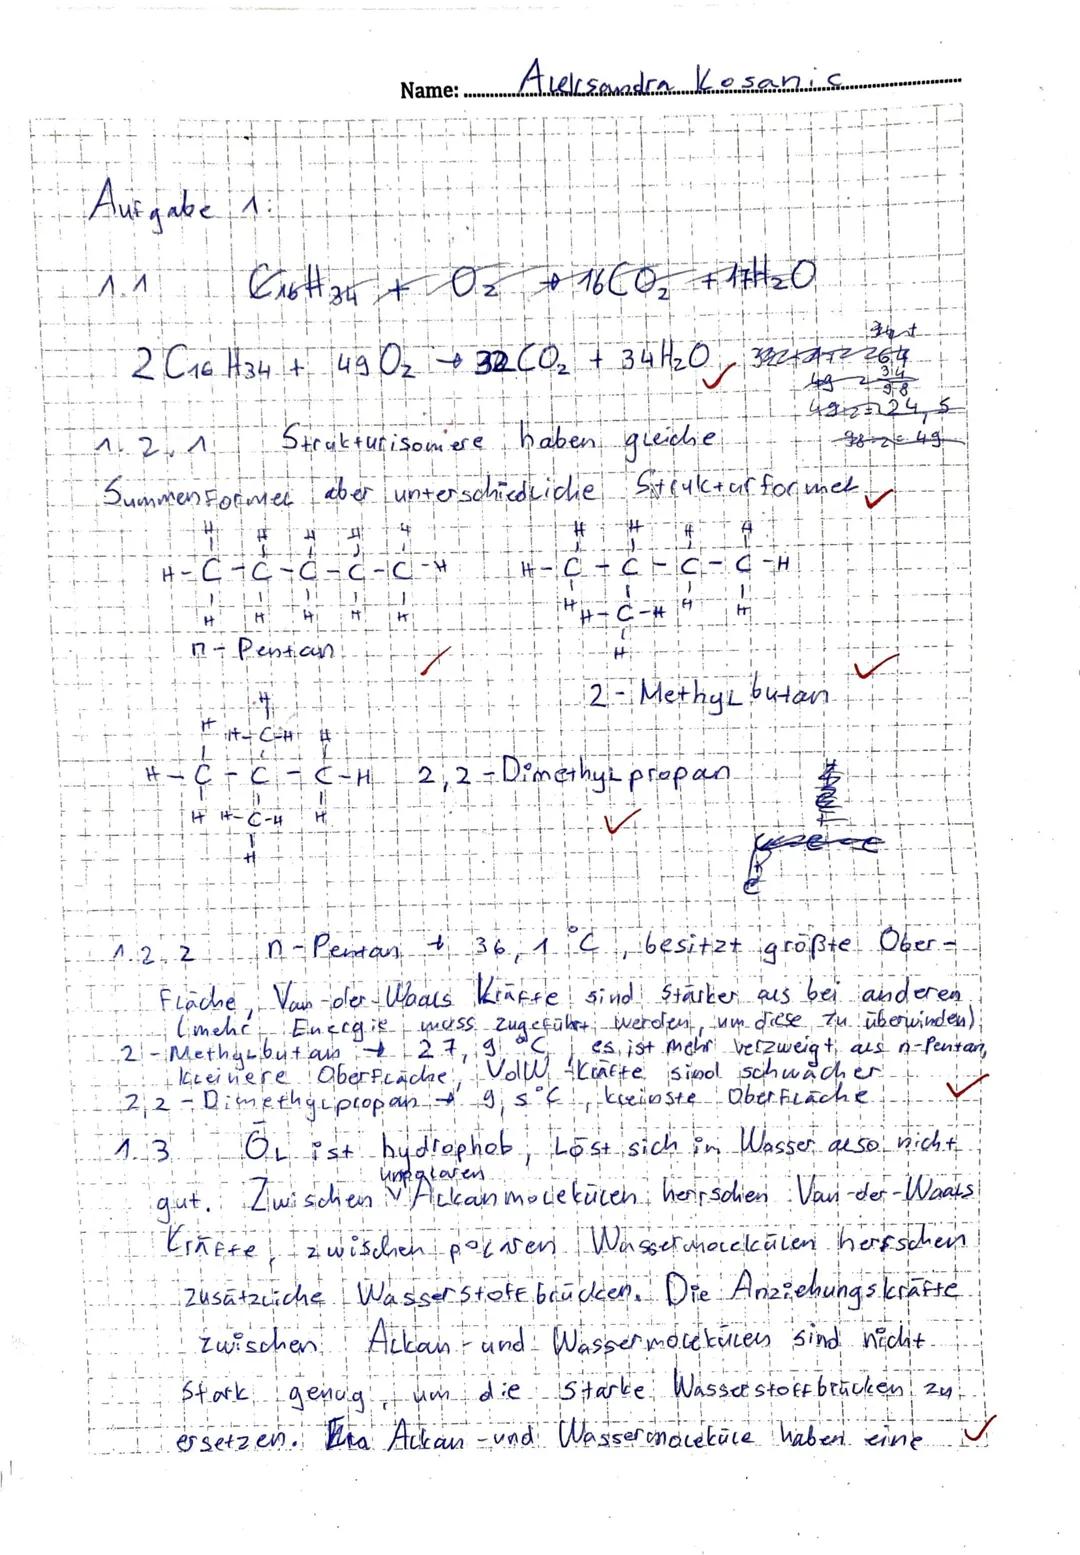 Name: Aleksandra Kosanic
Aufgabe 1:
1.1 C16H34 + O2 → 16CO2 + 17H2O
2 C16H34 + 49 O2 → 32 CO2 + 34 H2O
34 +
264
34
98
49:2=24,5
98:2=49
1.2.1 Strukturisomere haben gleiche
Summenformel aber unterschiedliche Strukturformel
H H H H H
H-C-C-C-C-C-H
H H H H H
n-Pentan
H H H H
H-C-C-C-C-H
H H-C-H H H
H
2-Methylbutan
H
H H-C-H H
H-C-C-C-H 2,2-Dimethylpropan
H H-C-H H
H
1.2.2 n-Pentan → 36,1°C, besitzt größte Ober-
fläche, Van-der-Waals Kräfte sind stärker als bei anderen
(mehr Energie muss zugeführt werden, um diese zu überwinden)
2-Methylbutan → 27,9°C, es ist mehr verzweigt als n-Pentan,
kleinere Oberfläche, VdW-Kräfte sind schwächer
2,2-Dimethylpropan → 9,5°C, kleinste Oberfläche
1.3 Öl ist hydrophob, löst sich in Wasser also nicht
unpolaren
gut. Zwischen Alkanmolekülen herrschen Van-der-Waals
Kräfte, zwischen polaren Wassermolekülen herrschen
zusätzliche Wasserstoffbrücken. Die Anziehungskräfte
zwischen Alkan- und Wassermolekülen sind nicht
stark genug, um die starke Wasserstoffbrücken zu
ersetzen. Alkan- und Wassermoleküle haben eine